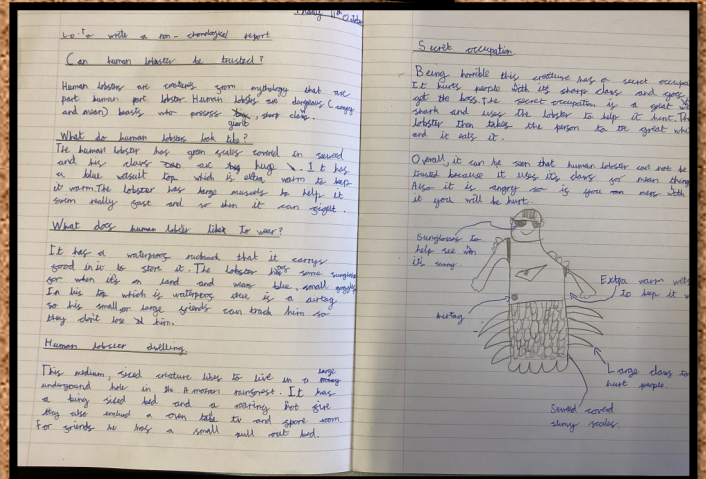 Friday 11th October
L.O: To write a non-chonological report
Can human lobster be trusted?
Human Lobsters are creatures from mythology that are
part human part lobster. Human Lobsters are dangerous (angry
and mean) beasts who possess giant, sharp claws.
What do human lobsters look like?
The human lobster has green scales covered in seaweed
and his claws are huge. It has
a blue wetsuit top which is extra warm to keep
it warm. The lobster has large muscels to help it
swim really fast and so then it can fight.
What does human lobster like to wear?
It has a waterproof rucksack that it carrys
food in it to store it. The lobster has some sunglasses
for when it's on land and wears blue, small goggles.
In his top which is waterproof there is a airtag
so his small or large friends can track him so
they don't lose him.
Human lobster dwelling
This medium, sized creature likes to live in a large
underground hole in the Amazon rainforest. It has
a king sized bed and a roaring hot fire
they also include a oven table tv and spare room.
For friends he has a small pull out bed.
Secret occupation
Being horrible this creature has a secret
It hurts people with its sharp claws and goes
get the boss. The secret occupation is a great
shark and uses the lobster to help it hunt. The
lobster then takes the person to the great
and it eats it.
Overall, it can be seen that human lobster can not be
trusted because it uses it's claws for mean things
Also it is angry so if you mess with
it you will be hurt.
Sunglasses to
help see when
it's sunny.
Extra warm
to keep it
airtag
Large claws to
hurt people.
Seaweed coverd
slimy scales.